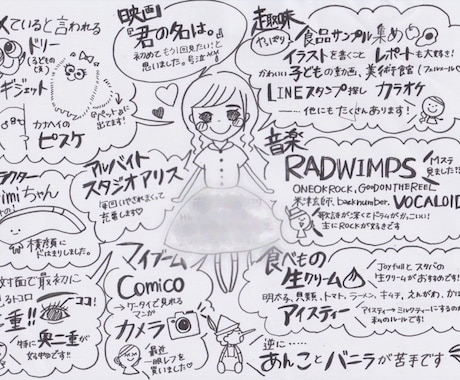 ていると言われる
ドリー
(子どもの頃)
ギジェット
ペットに出てます!
カナヘイの
ピスケ
映画
『君の名は。』
初めてもう1回見たい!と
思いました。号泣
趣味
やっぱり
食品サンプル集め
イラストを書くこと レポートも大好き!
かわいい子どもの動画、美術千館
LINEスタンプ探し カラオケ
……他にもたくさんあります!
アルバイト
スタジオアリス
毎回いやされまくって
充実します♡
音楽
RADWIMPS
見ました!!
ONE OK ROCK, GOOD ON THE REEL
米津玄師, back number, VOCALOID
歌詞が深くてドラムがかっこいい!
主にROCKが好きです
imiちゃん
横顔に
ドはまりしました。
対面で最初に
トコロ
ココ!
二重!!
特に奥二重が
好みです!!
マイブーム
Comico
→ケータイで見れる
マンガ
カメラ
最近
一眼レフを
買いました♡
食べもの
生クリーム
Joyfullとスタバの
生クリームがおすすめです!
明太子、貝類、トマト、ラーメン、キムチ、えんがわ、か
アイスティー
アイスティー→ミルクティーにするのが
私のルールです!
逆に……
あんことバニラが苦手です